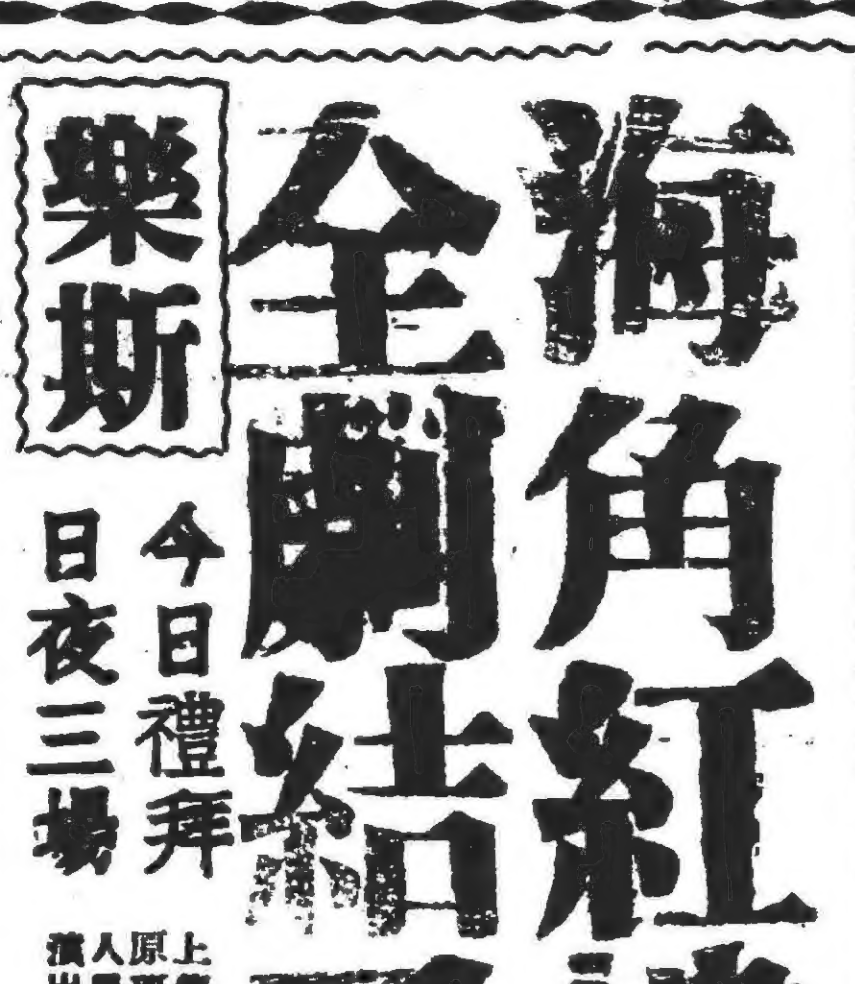 海角紅
全劇結
樂斯
今日禮拜
日夜三場
上
原
人
演